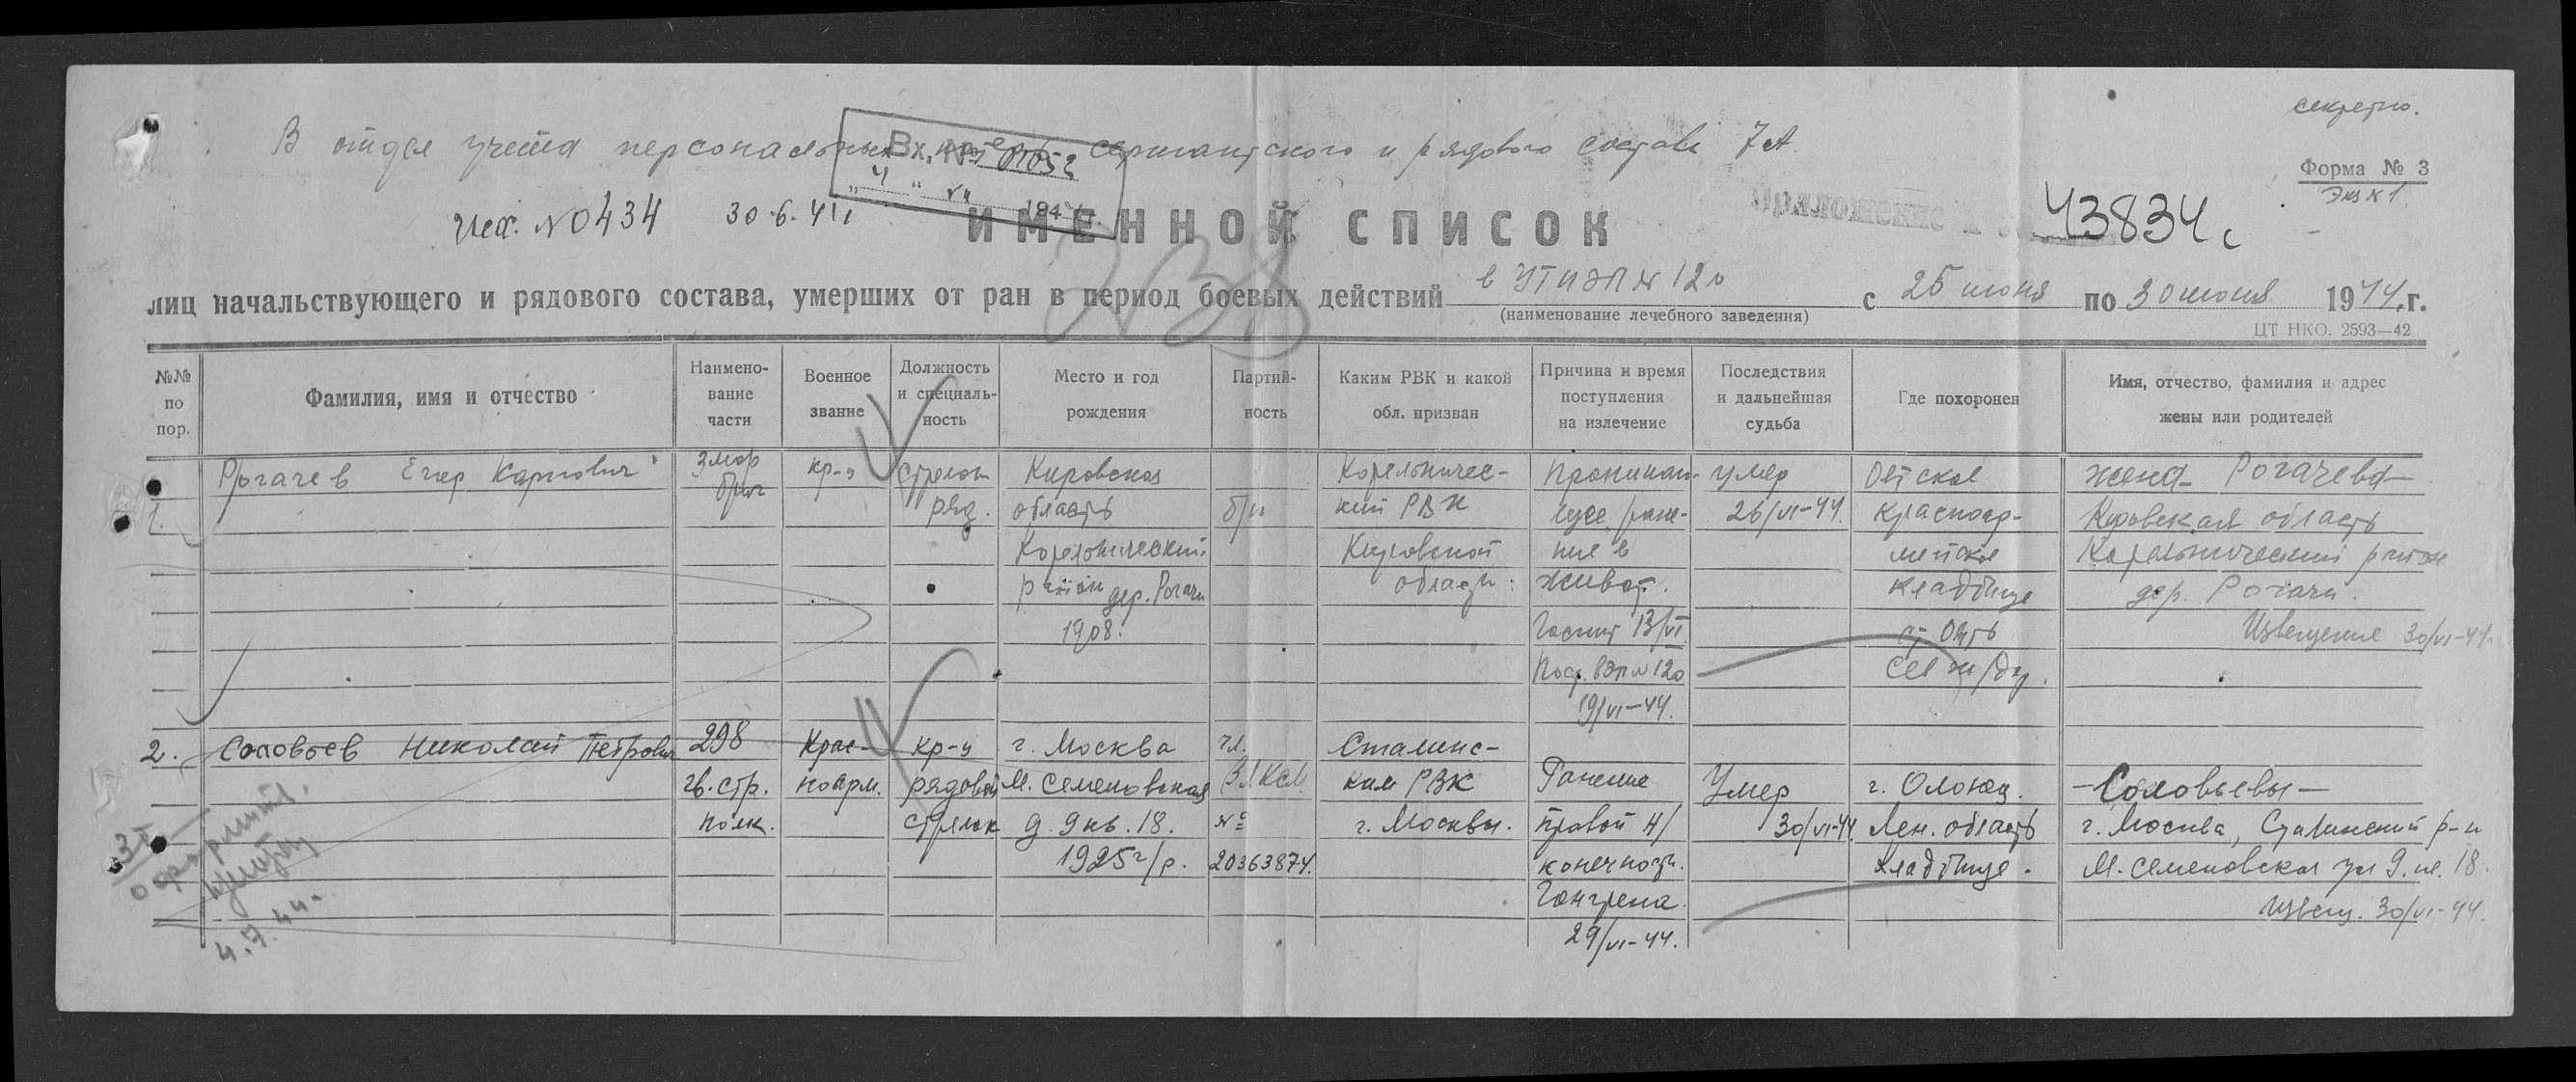 секретно.
В отдел учета персональных потерь сержантского и рядового состава 7А.
Вх. № 01052
194
Форма № 3
Экз № 1
Исх. № 0434 30.6.44
43834с
ИМЕННОЙ СПИСОК
лиц начальствующего и рядового состава, умерших от ран в период боевых действий в УГПЭП № 120 с 25 июня по 30 июня 1944 г.
(наименование лечебного заведения)
ЦТ НКО. 2593—42
№№ по пор.
Фамилия, имя и отчество
Наимено-вание части
Военное звание
Должность и специаль-ность
Место и год рождения
Партий-ность
Каким РВК и какой обл. призван
Причина и время поступления на излечение
Последствия и дальнейшая судьба
Где похоронен
Имя, отчество, фамилия и адрес жены или родителей
1.
Рогачев Егор Карпович
3 мор бриг
кр-ц
стрелок
ряд.
Кировская
область
Корельнический
район дер. Рогачи
1908.
б/п
Корельничес-
кий РВК
Кировской
области
Проникаю-
щее ране-
ние в
живот.
Госпит 13/VI
Пост. в ЭП № 120
19/VI-44.
умер
26/VI-44
Оятское
красноар-
мейское
кладбище
ст. Оять
Сев ж/дор.
жена Рогачева
Кировская область
Корельнический район
дер. Рогачи.
Извещение 30/VI-44
2.
Соловьев Николай Петрович
298
гв. стр.
полк.
Крас-
ноарм.
кр-ц
рядовой
стрелок
г. Москва
М. Семеновская
д. 9 кв. 18.
1925 г/р.
чл.
ВЛКСМ
№
20363874.
Сталинс-
ким РВК
г. Москвы.
Ранение
правой н/
конечности.
Гангрена.
29/VI-44.
Умер
30/VI-44
г. Олонец.
Лен. область
кладбище.
Соловьевы
г. Москва, Сталинский р-н
М. Семеновская ул 9. кв. 18.
Извещ. 30/VI-44.
4.7.44